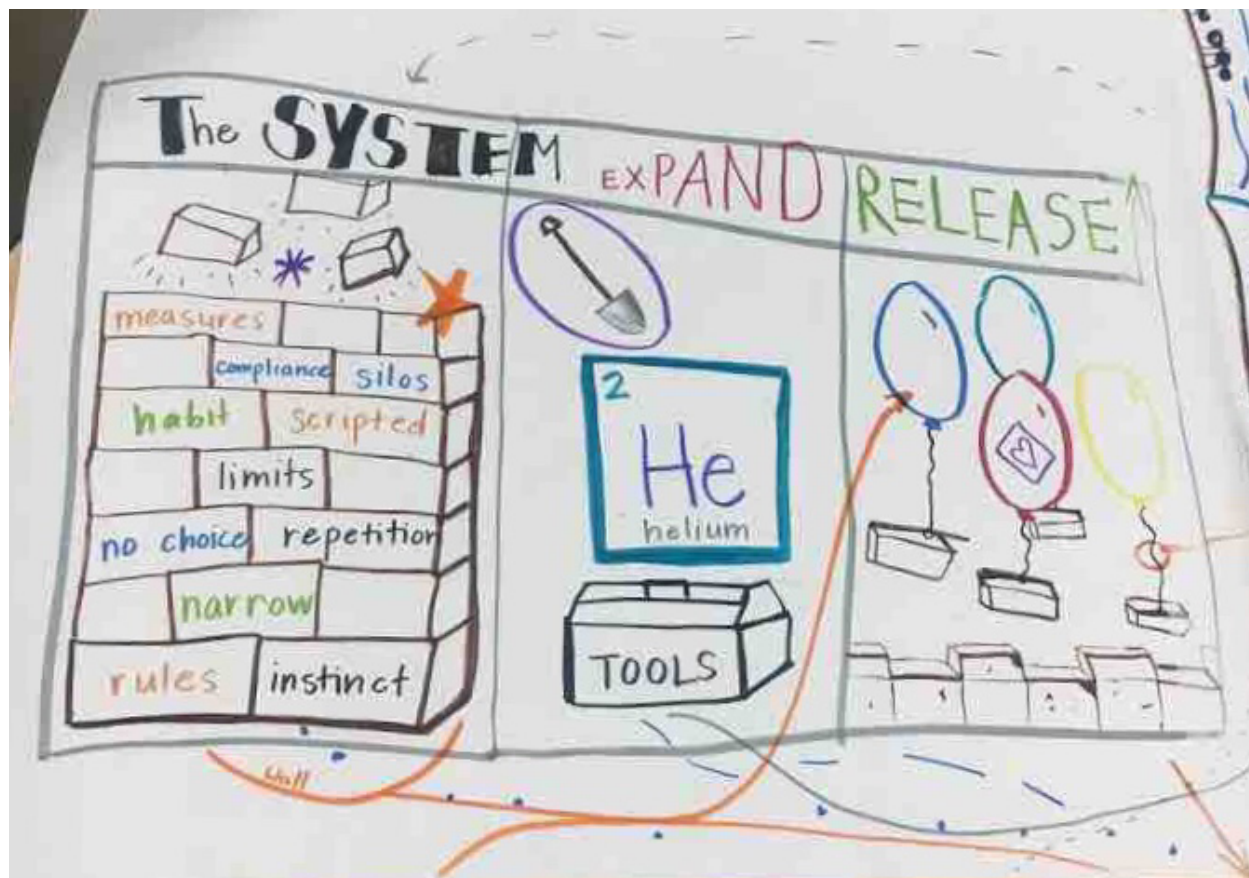 The SYSTEM
EXPAND
RELEASE
measures
compliance silos
habit scripted
limits
no choice repetition
narrow
rules instinct
2
He
helium
TOOLS
wall